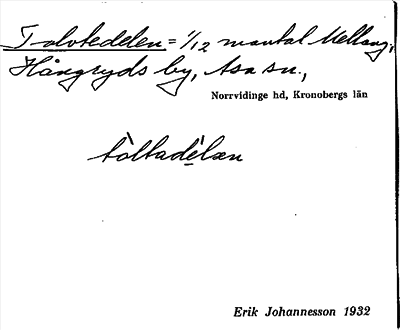 Tolvtedelen = 1/12 mantal Mellang,
Hångryds by, Asa sn.,
Norrvidinge hd, Kronobergs län
tòltadèlæn
Erik Johannesson 1932